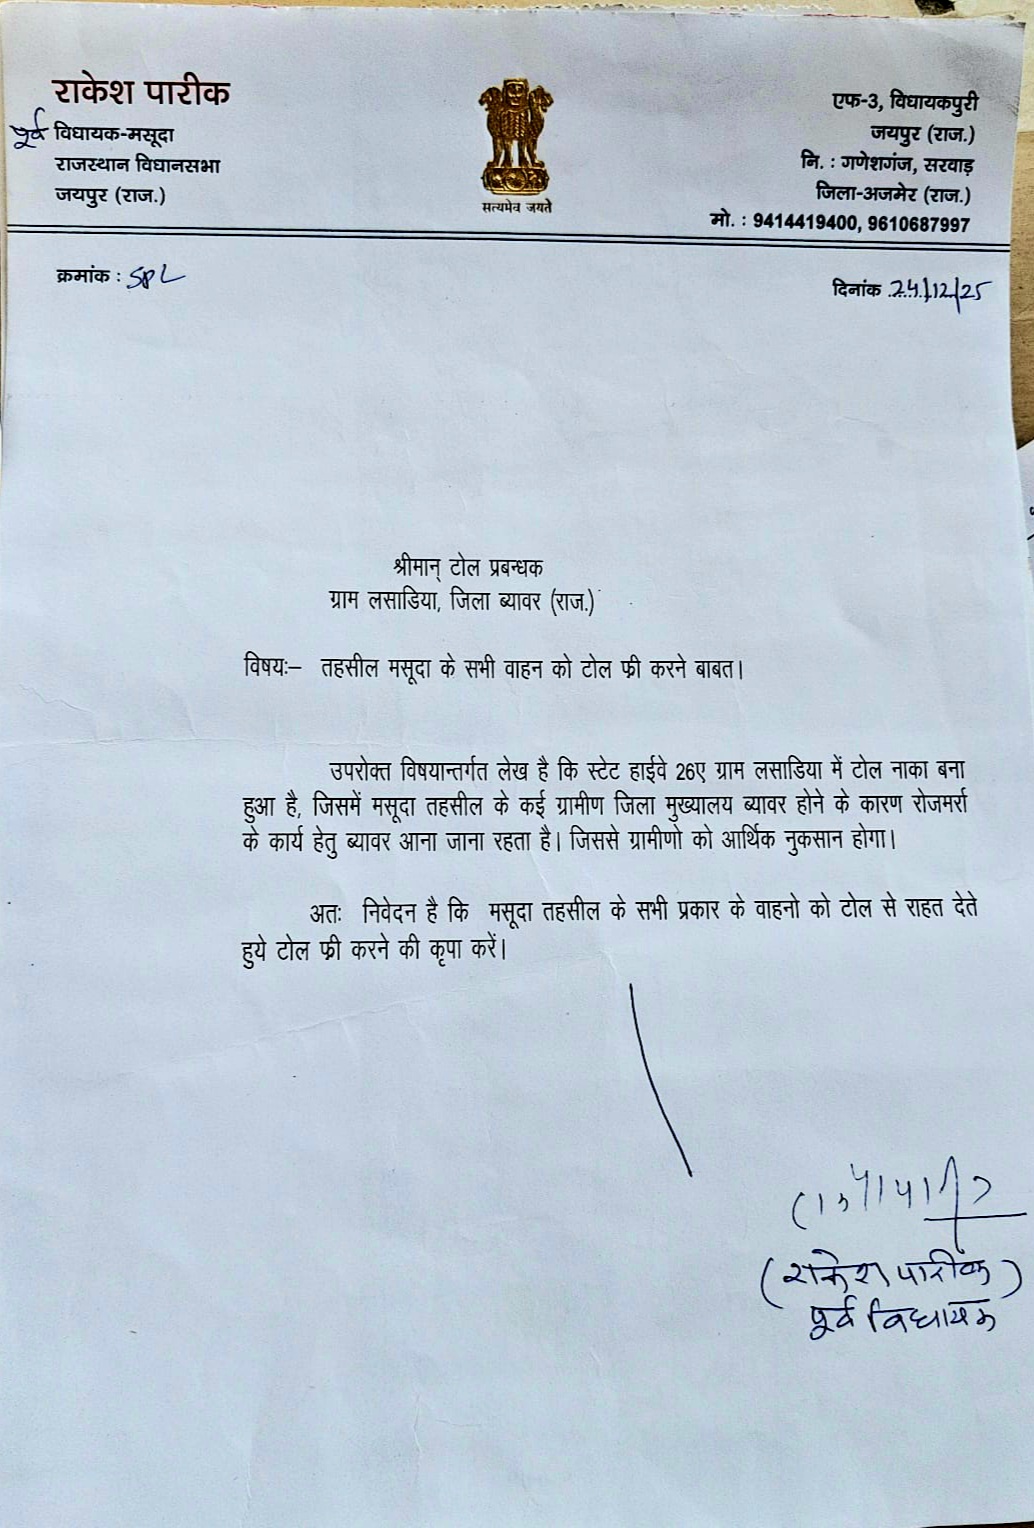 राकेश पारीक
पूर्व विधायक-मसूदा
राजस्थान विधानसभा
जयपुर (राज.)
सत्यमेव जयते
एफ-3, विधायकपुरी
जयपुर (राज.)
नि. : गणेशगंज, सरवाड़
जिला-अजमेर (राज.)
मो. : 9414419400, 9610687997
क्रमांक : SPL
दिनांक 24/12/25
श्रीमान् टोल प्रबन्धक
ग्राम लसाडिया, जिला ब्यावर (राज.)
विषयः– तहसील मसूदा के सभी वाहन को टोल फ्री करने बाबत।
उपरोक्त विषयान्तर्गत लेख है कि स्टेट हाईवे 26ए ग्राम लसाडिया में टोल नाका बना
हुआ है, जिसमें मसूदा तहसील के कई ग्रामीण जिला मुख्यालय ब्यावर होने के कारण रोजमर्रा
के कार्य हेतु ब्यावर आना जाना रहता है। जिससे ग्रामीणो को आर्थिक नुकसान होगा।
अतः निवेदन है कि मसूदा तहसील के सभी प्रकार के वाहनो को टोल से राहत देते
हुये टोल फ्री करने की कृपा करें।
(राकेश पारीक)
पूर्व विधायक